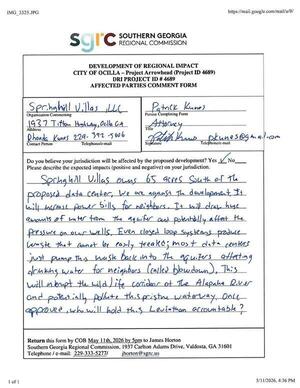 IMG_3325.JPG
https://mail.google.com/mail/u/0/
sgrc SOUTHERN GEORGIA
REGIONAL COMMISSION
DEVELOPMENT OF REGIONAL IMPACT
CITY OF OCILLA – Project Arrowhead (Project ID 4689)
DRI PROJECT ID # 4689
AFFECTED PARTIES COMMENT FORM
Springhill Villas LLC
Organization Commenting
1937 Tifton Highway, Ocilla GA
Address
Rhonda Kunes 229-392-
Contact Person Telephone/e-mail
Patrick Kunes
Person Completing Form
Attorney
Title
Signature Telephone/e-mail
Do you believe your jurisdiction will be affected by the proposed development? Yes ✓ No
Describe the expected impacts (positive and negative) on your jurisdiction.
Springhill Villas owns 65 acres South of the
proposed data center. We are against the development. It
will increase power bills for neighbors. It will draw huge
amounts of water from the aquifer and potentially affect the
pressure on our wells. Even closed loop systems produce
waste that cannot be easily treated; most data centers
just pump this waste back into the aquifers affecting
drinking water for neighbors (called blowdown). This
will interrupt the wild life corridor at the Alapaha River
and potentially pollute this pristine waterway. Once
approved, who will hold this Leviathan accountable?
Return this form by COB May 11th, 2026 by 5pm to James Horton
Southern Georgia Regional Commission, 1937 Carlton Adams Drive, Valdosta, GA 31601
Telephone / e-mail: 229-333-5277/ jhorton@sgrc.us
1 of 1
5/11/2026, 4:36 PM